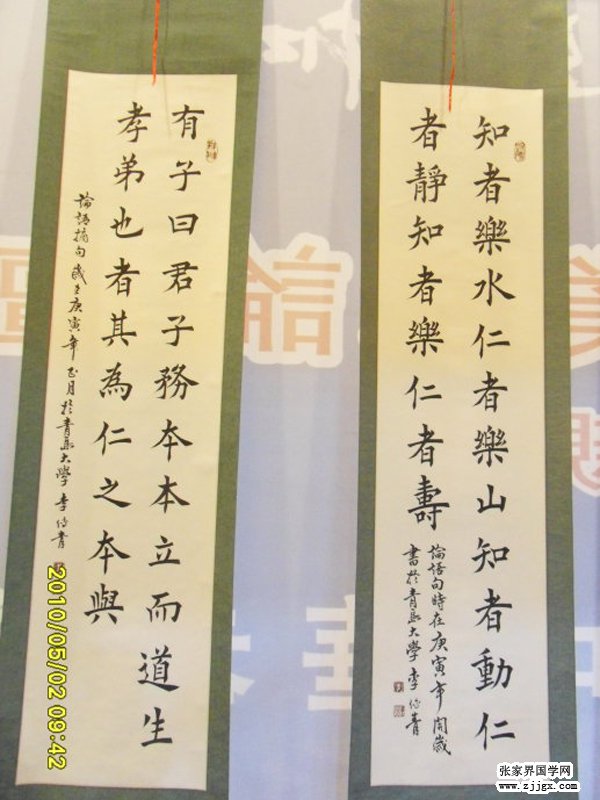 知者樂水仁者樂山知者動仁
者靜知者樂仁者壽
論語句時在庚寅年開歲
書於青島大學李
有子曰君子務本本立而道生
孝弟也者其為仁之本與
論語摘句歲在庚寅年正月於青島大學李
論
2010/05/02 09:42
张家界国学网
www.zjjgx.com